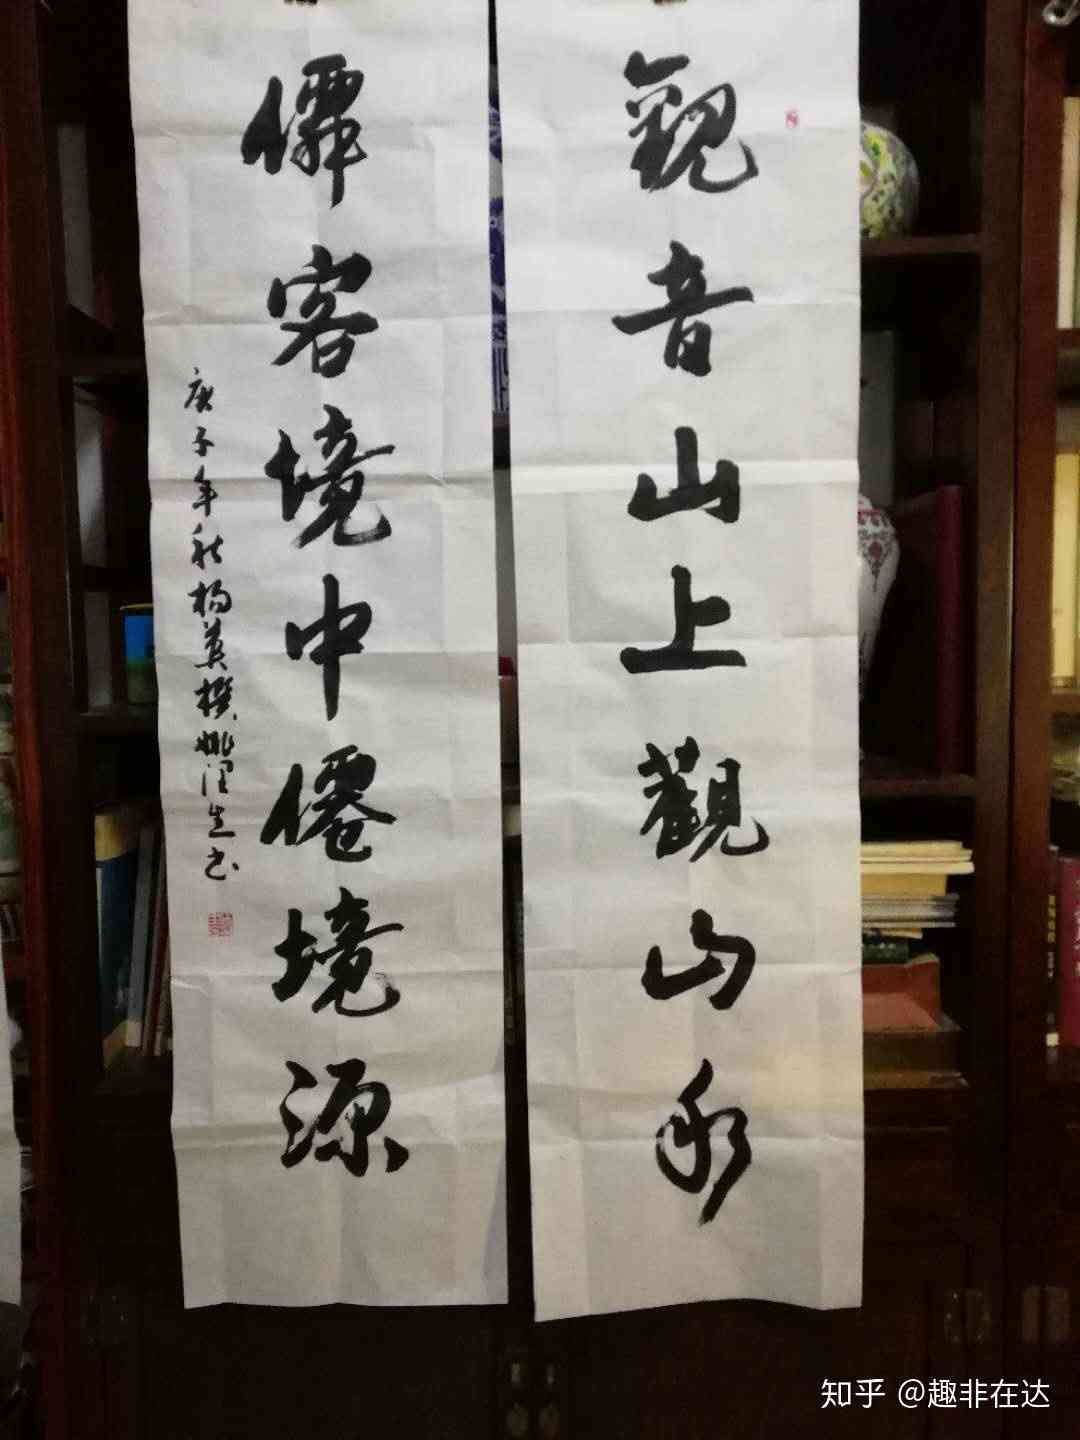 觀音山上觀山水
僊客境中僊境源
庚子年秋楊英撰姚润生书
知乎 @趣非在达